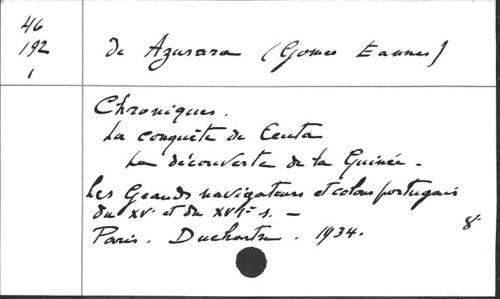 46
192
1
de Azurara (Gomes Eannes)
Chroniques.
La conquête de Ceuta
La découverte de la Guinée.
Les Grands navigateurs et colons portugais
du XVe et du XVIe s. –
Paris. Duchartre. 1934.
8º